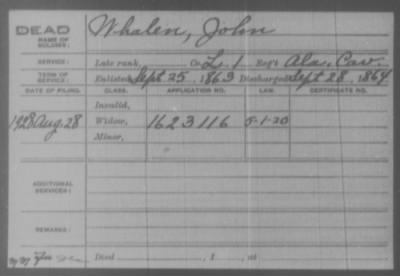 DEAD
NAME OF SOLDIER:
Whalen, John
SERVICE:
Late rank, Co. L, 1 Reg't Ala. Cav.
TERM OF SERVICE:
Enlisted Sept 25, 1863 Discharged Sept 28, 1864
DATE OF FILING. CLASS. APPLICATION NO. LAW. CERTIFICATE NO.
Invalid,
1928 Aug. 28 Widow, 1623116 5-1-20
Minor,
ADDITIONAL SERVICES:
REMARKS:
Died , 1 , at